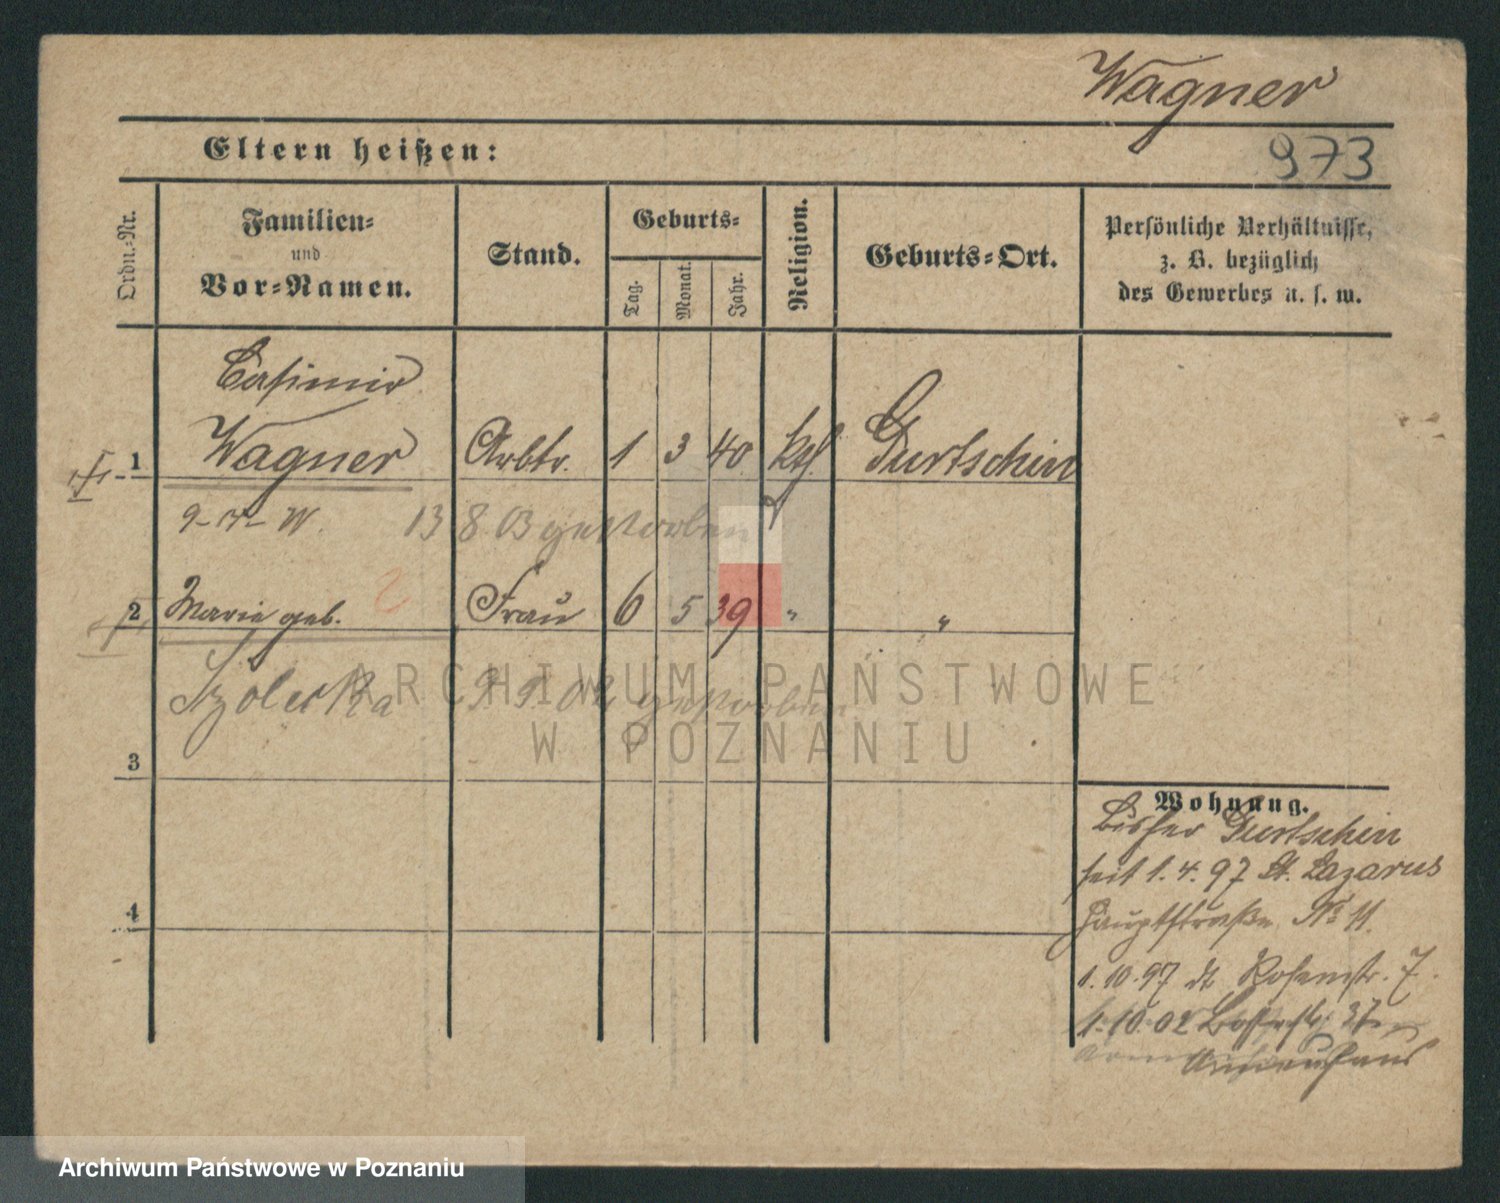 Wagner
Eltern heißen:
973
Ordn.-Nr.
Familien-
und
Vor-Namen.
Stand.
Geburts-
Tag.
Monat.
Jahr.
Religion.
Geburts-Ort.
Persönliche Verhältnisse,
z. B. bezüglich
des Gewerbes u. s. w.
Casimir
1 Wagner Arbtr. 1 3 40 kth. Gurtschin
13 8 03 gestorben
2 Marie geb. Frau 6 5 39 " "
2
9 9 02 gestorben
3
4
Wohnung.
bisher Gurtschin
seit 1. 4. 97 St. Lazarus
Hauptstraße No 11.
1. 10. 97 dt Rosenstr. 7.
1. 10. 02
ARCHIWUM PAŃSTWOWE
W POZNANIU
Archiwum Państwowe w Poznaniu